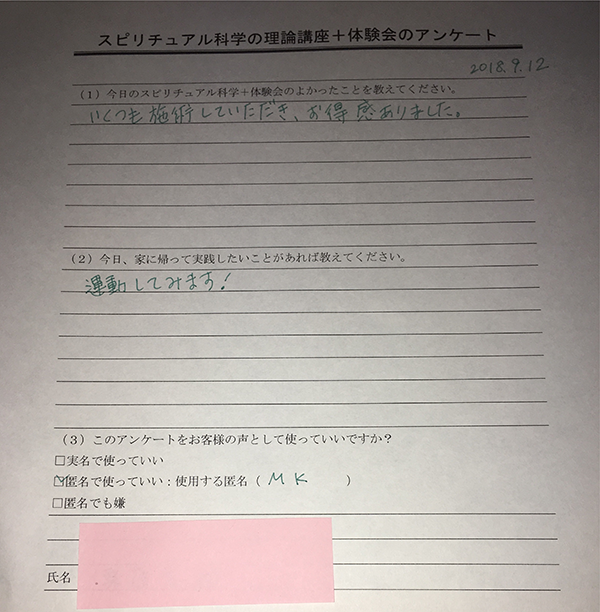 スピリチュアル科学の理論講座＋体験会のアンケート
2018.9.12
（1）今日のスピリチュアル科学＋体験会のよかったことを教えてください。
いくつも施術していただき、お得感ありました。
（2）今日、家に帰って実践したいことがあれば教えてください。
運動してみます！
（3）このアンケートをお客様の声として使っていいですか？
□実名で使っていい
☑匿名で使っていい：使用する匿名（ MK ）
□匿名でも嫌
氏名